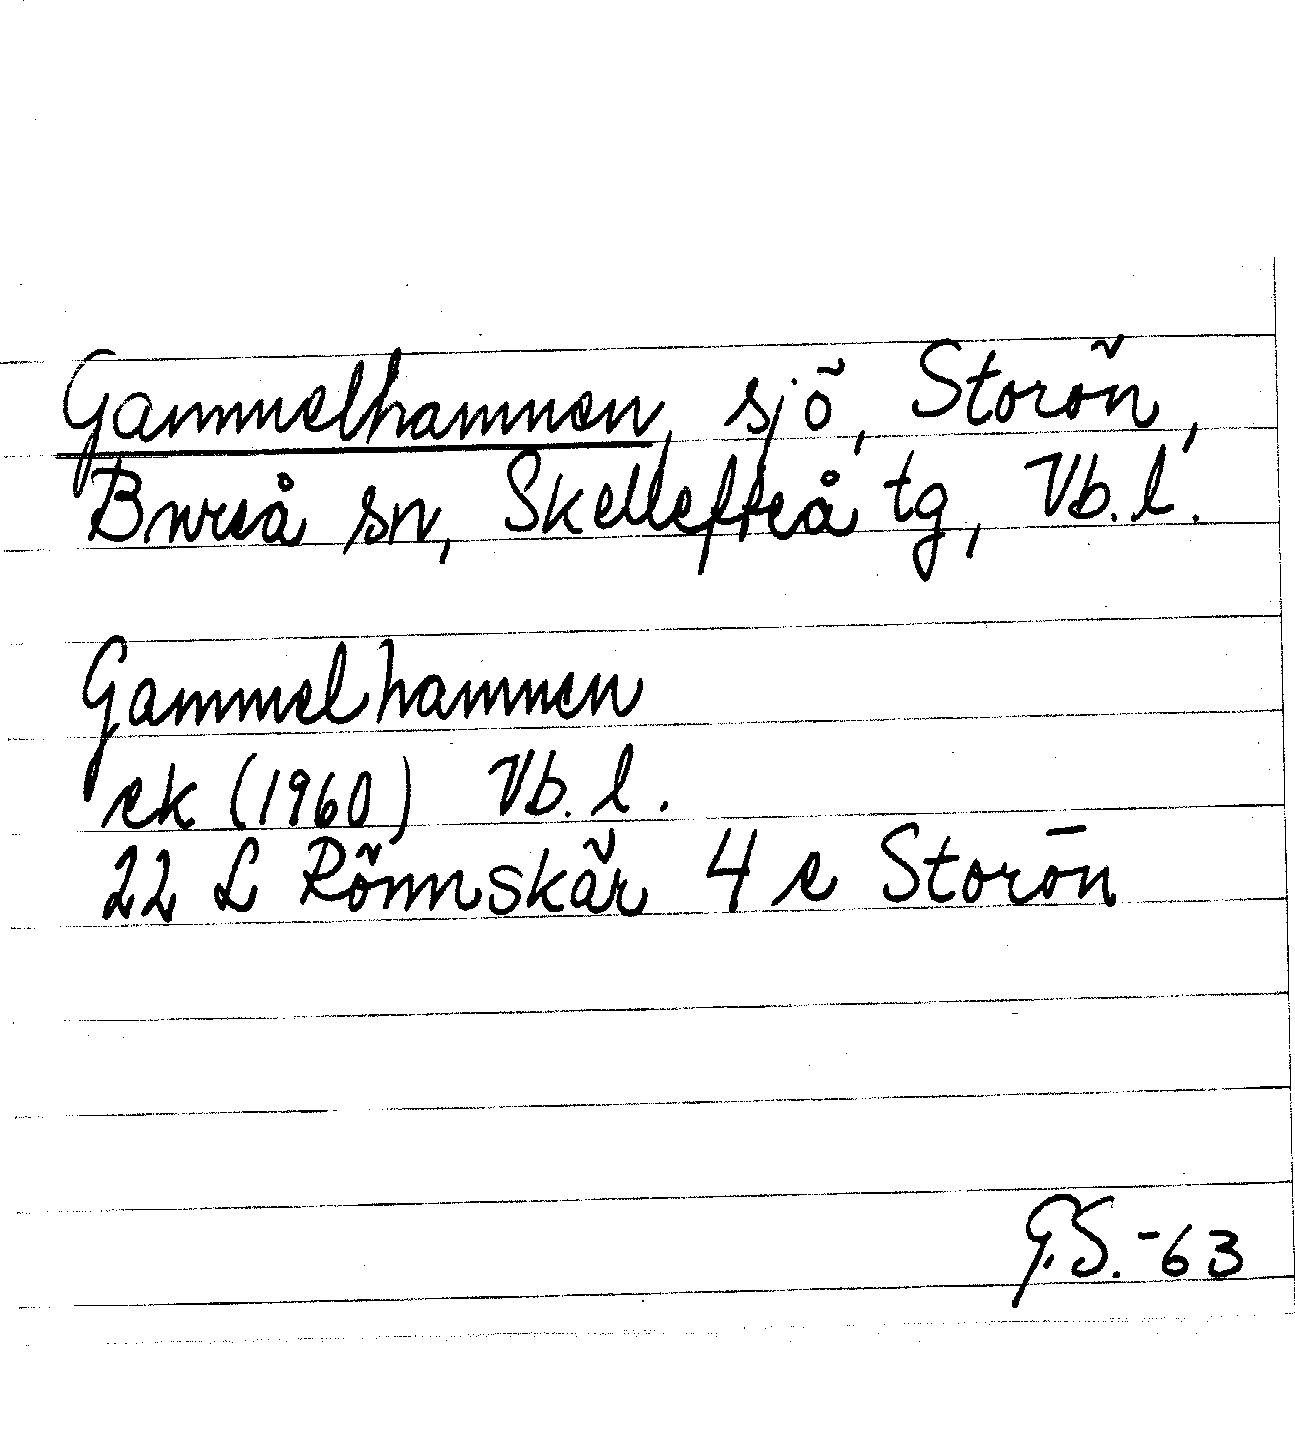 Gammelhamnen, sjö, Storön,
Bureå sn, Skellefteå tg, Vb. l.
Gammelhamnen
ek (1960) Vb. l.
22 L Rönnskär 4 e Storön
G.S. -63